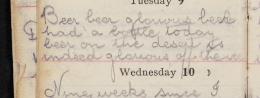 Tuesday 9
Beer beer glorious beer
had a bottle today
beer on the desert is
indeed glorious
Wednesday 10
Nine weeks since I